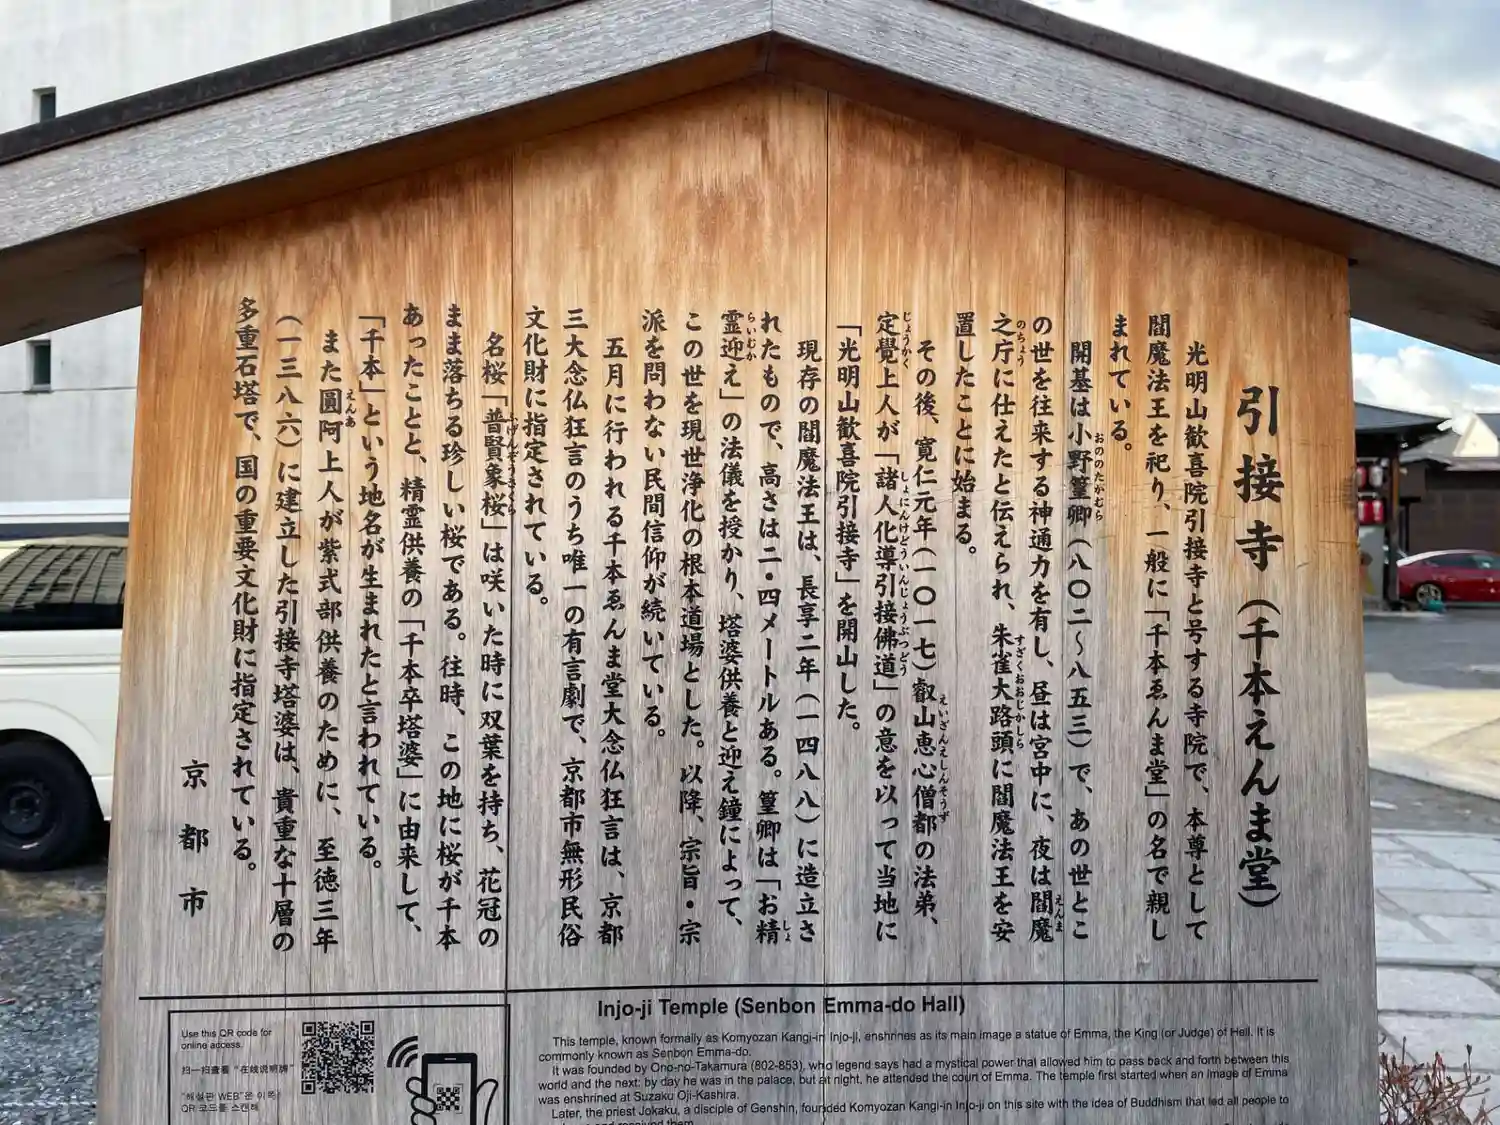 引接寺（千本えんま堂）
光明山歓喜院引接寺と号する寺院で、本尊として
閻魔法王を祀り、一般に「千本ゑんま堂」の名で親し
まれている。
開基は小野篁卿（八〇二〜八五三）で、あの世とこ
おののたがむら
の世を往来する神通力を有し、昼は宮中に、夜は閻魔
えんま
之庁に仕えたと伝えられ、朱雀大路頭に閻魔法王を安
のちょう
すざくおおじかしら
置したことに始まる。
その後、寛仁元年（一〇一七）叡山恵心僧都の法弟、
えいざんえしんそうず
定覺上人が「諸人化導引接佛道」の意を以って当地に
じょうかく
しょにんけどういんじょうぶつどう
「光明山歓喜院引接寺」を開山した。
現存の閻魔法王は、長享二年（一四八八）に造立さ
れたもので、高さは二・四メートルある。篁卿は「お精
しょ
霊迎え」の法儀を授かり、塔婆供養と迎え鐘によって、
らいむか
この世を現世浄化の根本道場とした。以降、宗旨・宗
派を問わない民間信仰が続いている。
五月に行われる千本ゑんま堂大念仏狂言は、京都
三大念仏狂言のうち唯一の有言劇で、京都市無形民俗
文化財に指定されている。
名桜「普賢象桜」は咲いた時に双葉を持ち、花冠の
ふげんぞうさくら
まま落ちる珍しい桜である。往時、この地に桜が千本
あったことと、精霊供養の「千本卒塔婆」に由来して、
「千本」という地名が生まれたと言われている。
また圓阿上人が紫式部供養のために、至徳三年
えんあ
（一三八六）に建立した引接寺塔婆は、貴重な十層の
多重石塔で、国の重要文化財に指定されている。
京都市
Injo-ji Temple (Senbon Emma-do Hall)
This temple, known formally as Komyozan Kangi-in Injo-ji, enshrines as its main image a statue of Emma, the King (or Judge) of Hell. It is
commonly known as Senbon Emma-do.
It was founded by Ono-no-Takamura (802-853), who legend says had a mystical power that allowed him to pass back and forth between this
world and the next: by day he was in the palace, but at night, he attended the court of Emma. The temple first started when an image of Emma
was enshrined at Suzaku Oji-Kashira.
Later, the priest Jokaku, a disciple of Genshin, founded Komyozan Kangi-in Injo-ji on this site with the idea of Buddhism that led all people to
Use this QR code for
online access.
扫一扫查看 “在线说明牌”
"해설판 WEB"은 이쪽!
QR 코드를 스캔해